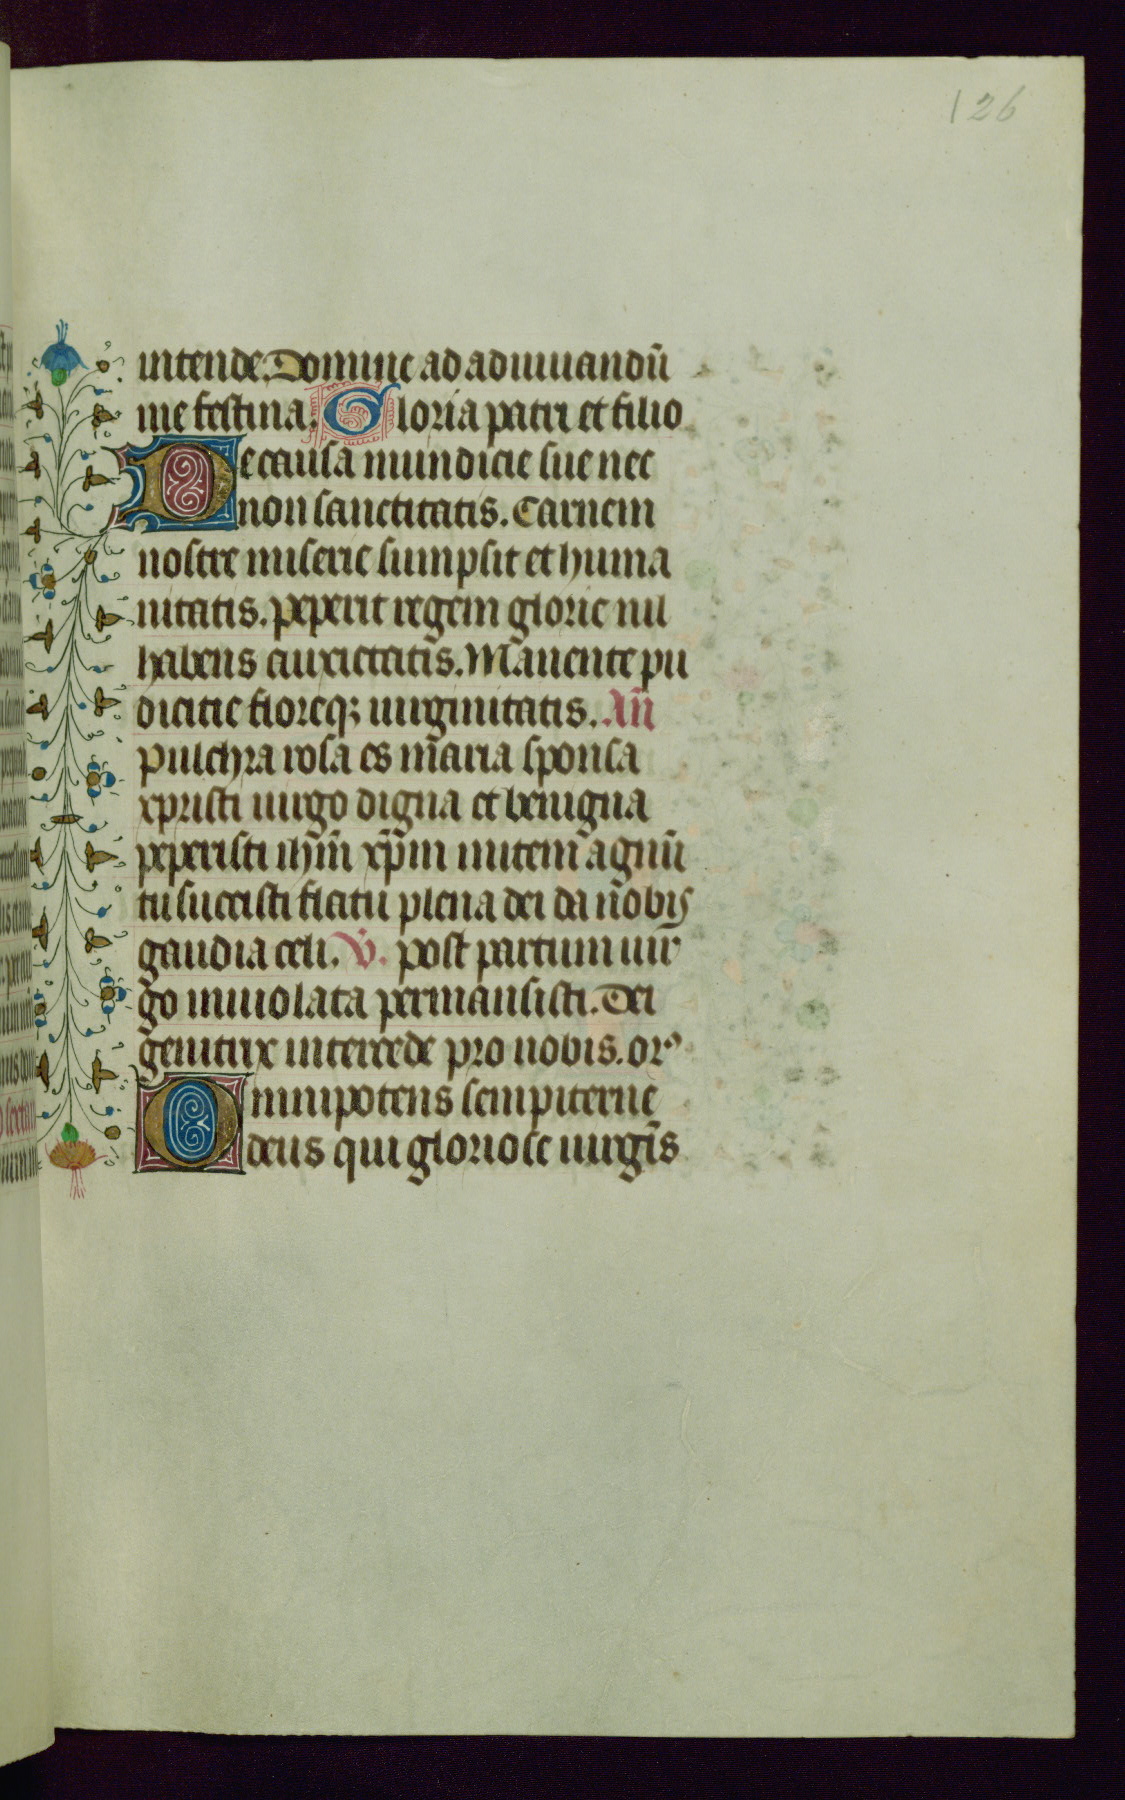 126
intende. Domine ad adiuuandū
me festina. Gloria patri et filio
De causa mundicie sue nec
non sanctitatis. Carnem
nostre miserie sumpsit et huma
nitatis. peperit regem glorie nil
habens anxietatis. Manente pu
dicitie floreq; uirginitatis. An̄
Pulchra rosa es maria sponsa
xpristi uirgo digna et benigna
peperisti ihm̄ xp̄m mitem agnū
tu succisti flatu plena dei da nobis
gaudia celi. V. post partum uir
go inuiolata permansisti. Dei
genitrix intercede pro nobis. or°
Omnipotens sempiterne
deus qui gloriose uirgīs